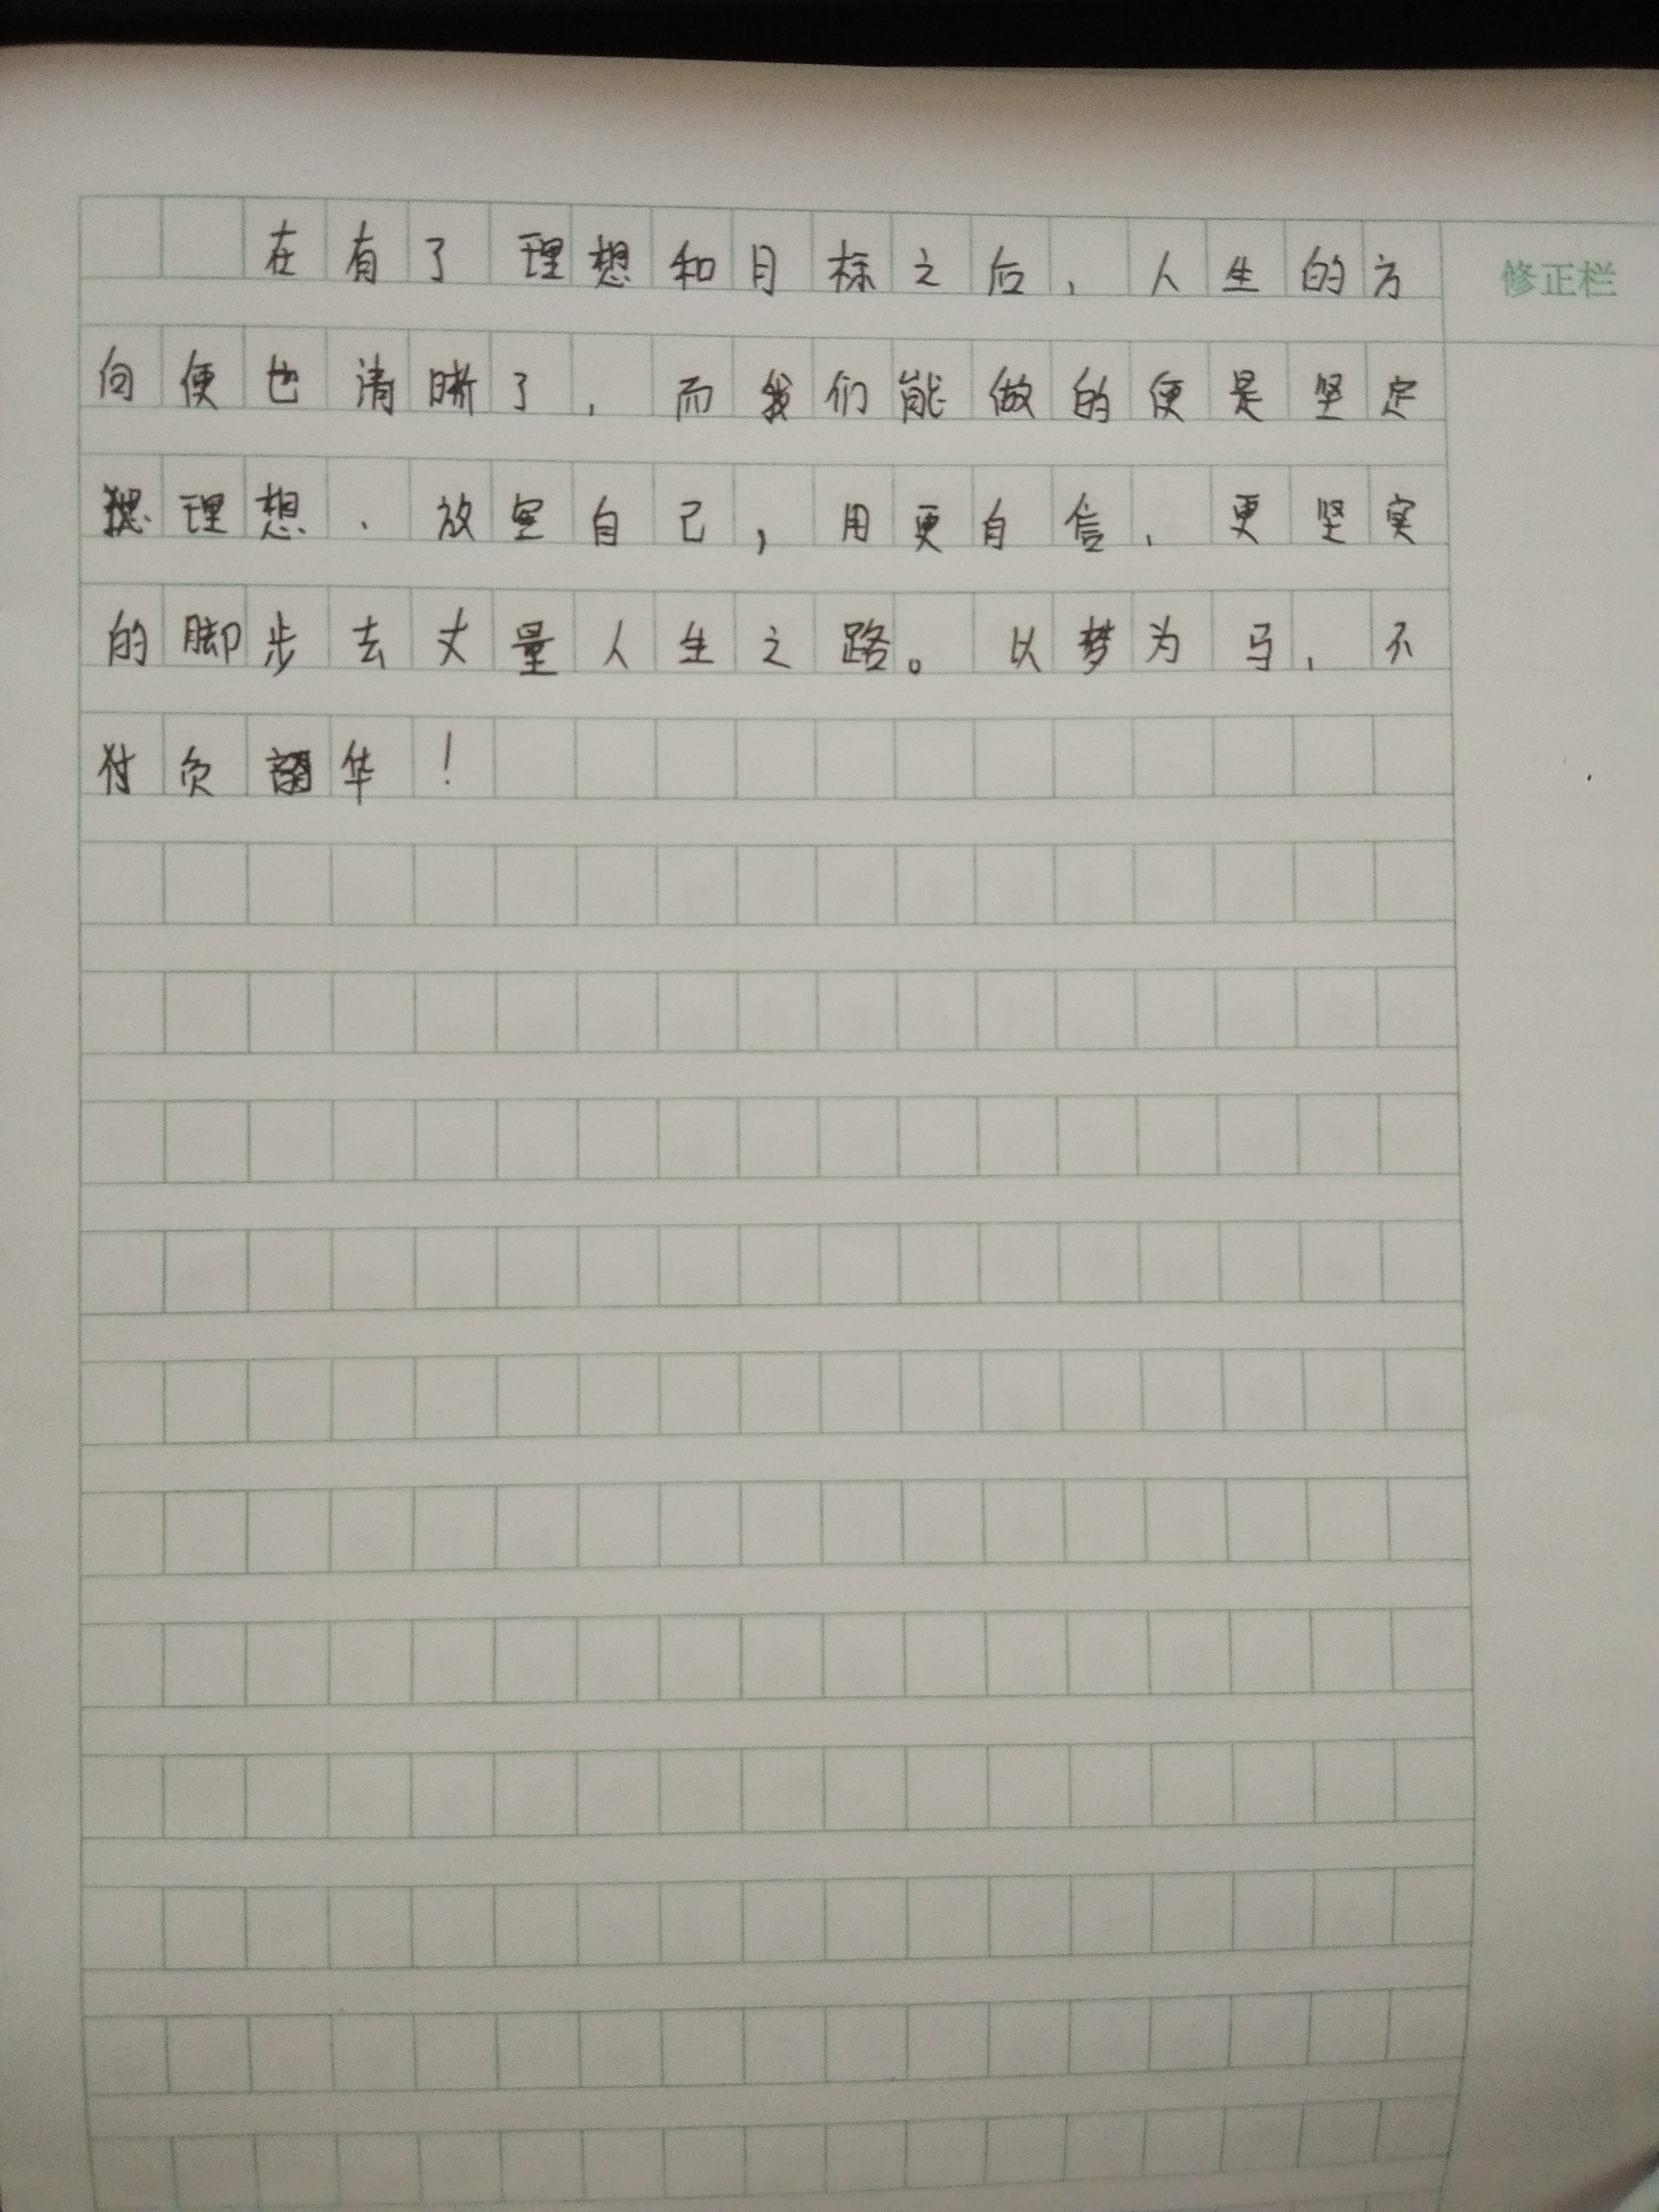 在有了理想和目标之后，人生的方
修正栏
向便也清晰了，而我们能做的便是坚定
理想、放空自己，用更自信、更坚实
的脚步去丈量人生之路。以梦为马，不
付负韶华！